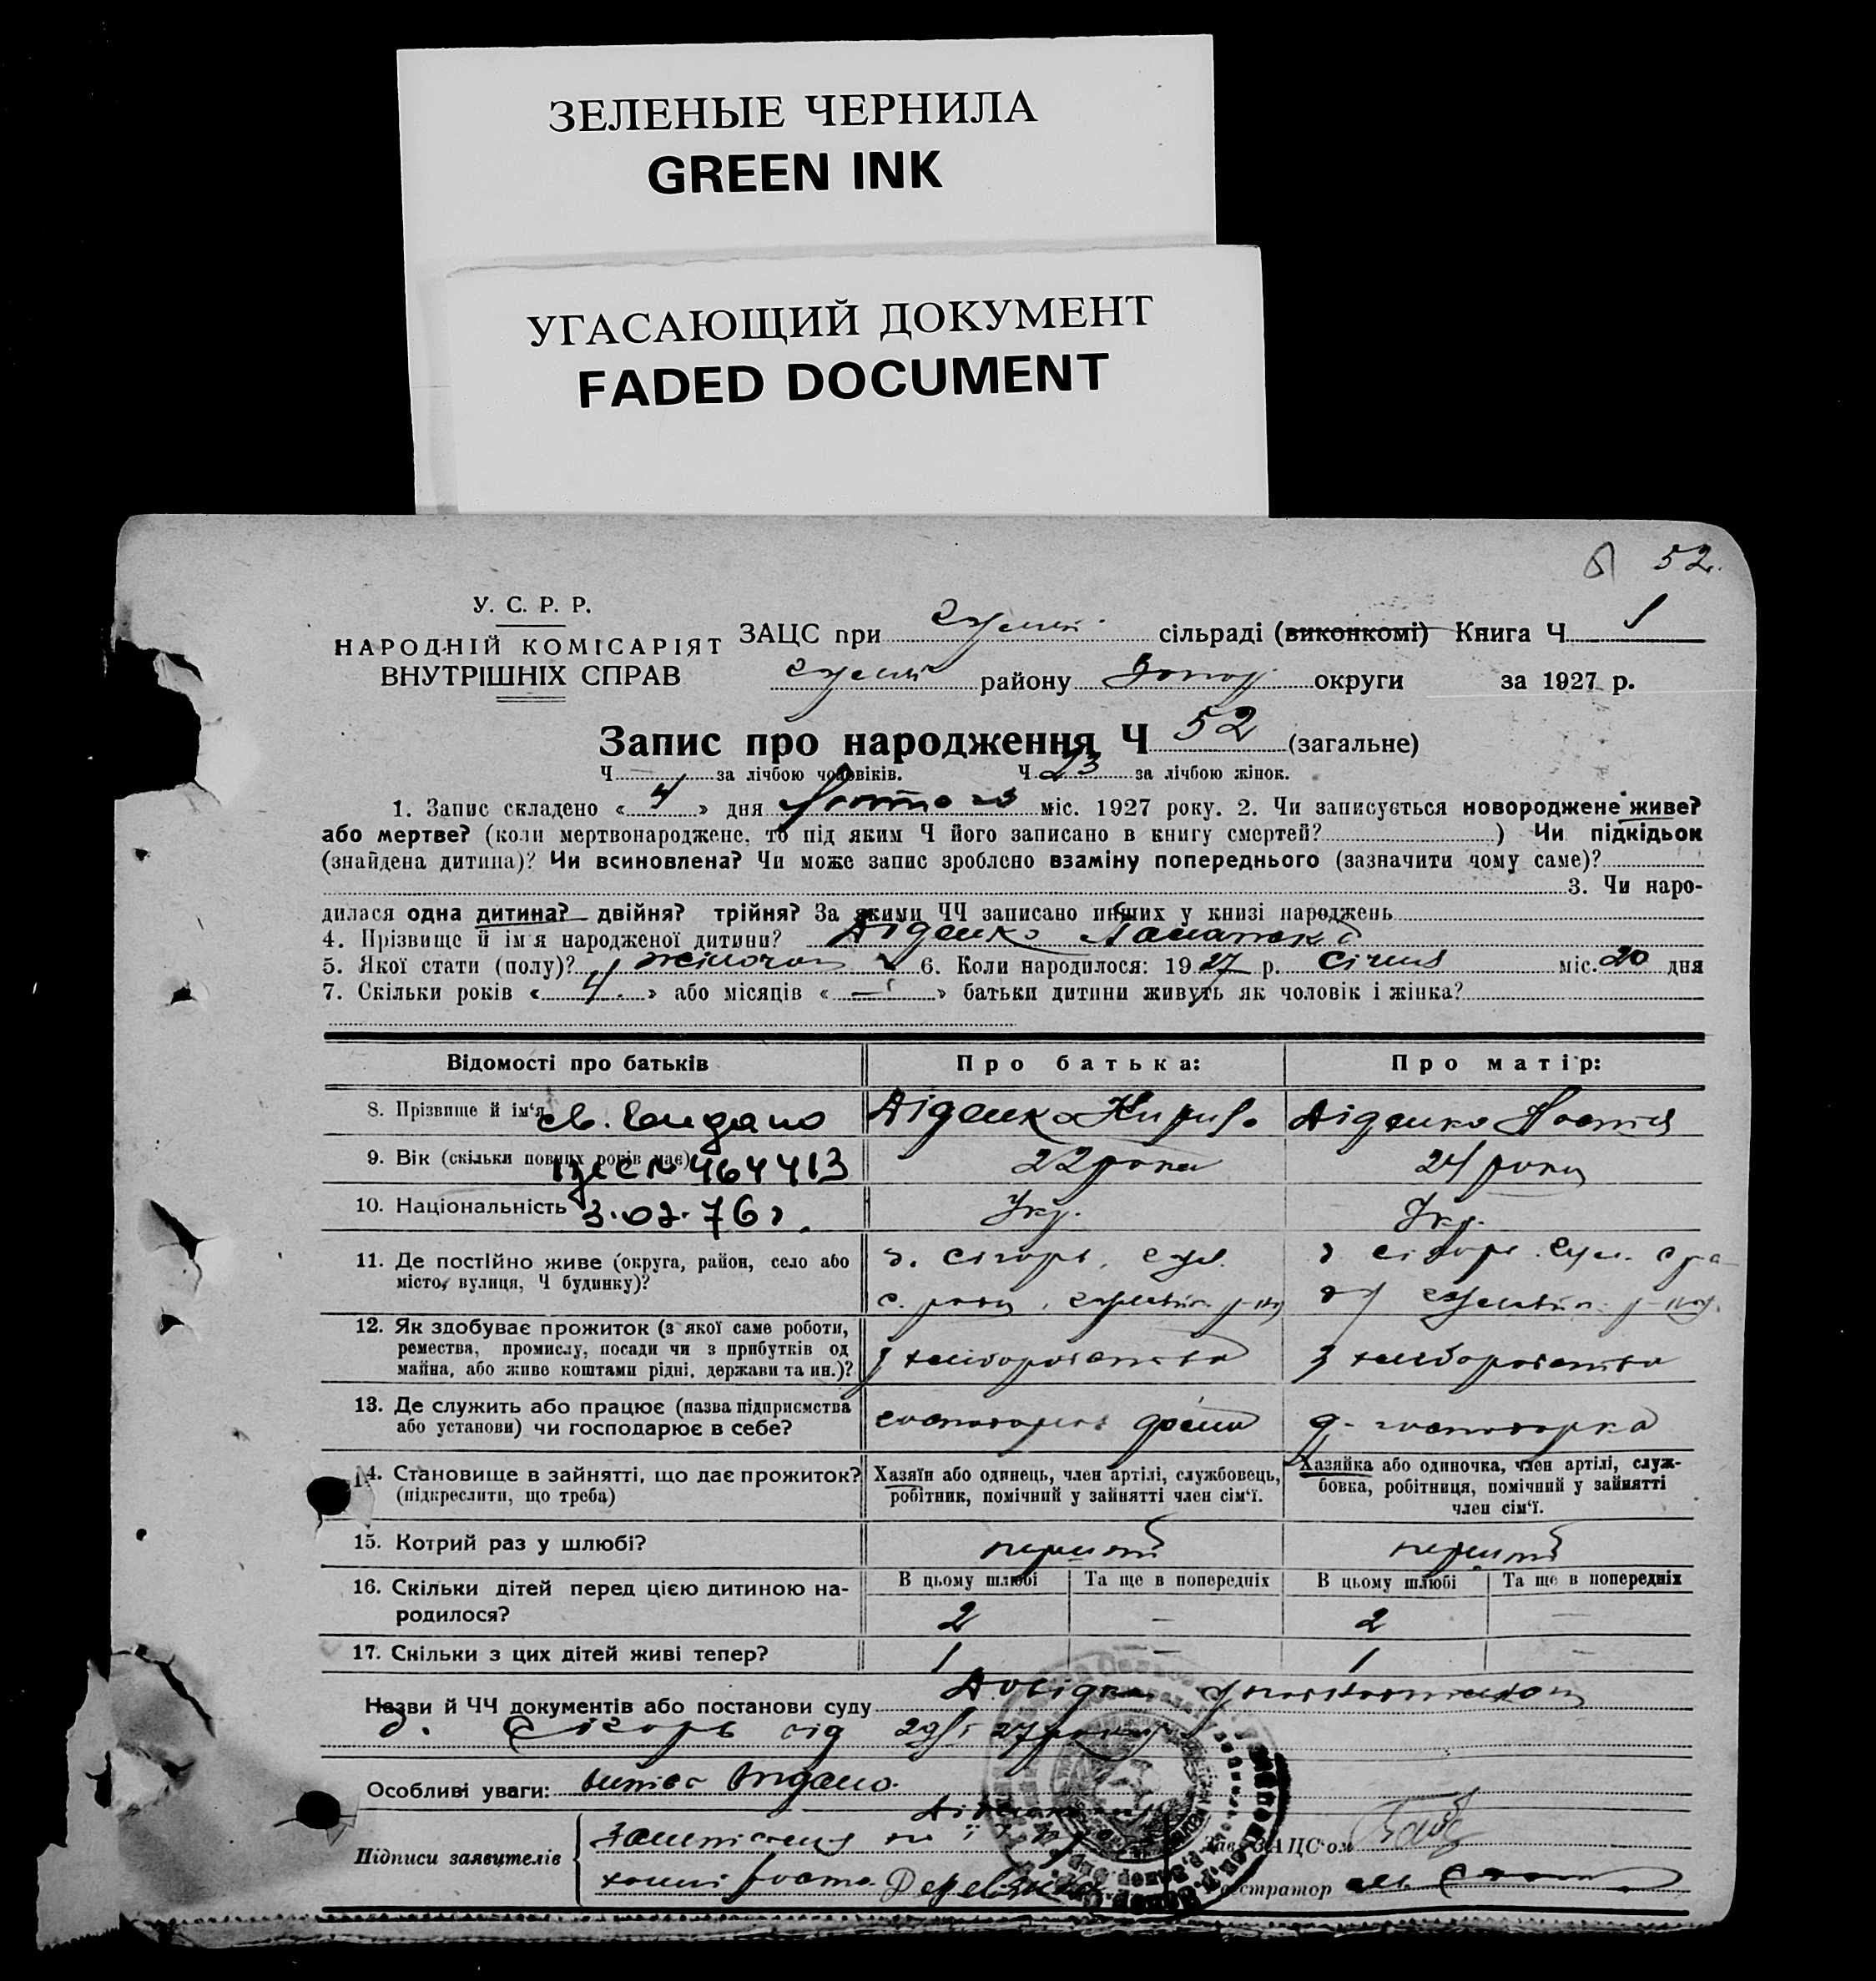 ЗЕЛЕНЫЕ ЧЕРНИЛА
GREEN INK
УГАСАЮЩИЙ ДОКУМЕНТ
FADED DOCUMENT
52.
У. С. Р. Р.
НАРОДНІЙ КОМІСАРІЯТ
ВНУТРІШНІХ СПРАВ
ЗАЦС при сільраді (виконкомі) Книга Ч 1
району округи за 1927 р.
Запис про народження Ч 52 (загальне)
Ч за лічбою чоловіків. Ч 23 за лічбою жінок.
1. Запис складено « 4 » дня лютого міс. 1927 року. 2. Чи записується новороджене живе?
або мертве? (коли мертвонароджене, то під яким Ч його записано в книгу смертей? ) Чи підкідьок
(знайдена дитина)? Чи всиновлена? Чи може запис зроблено взаміну попереднього (зазначити чому саме)?
3. Чи наро-
дилася одна дитина? двійня? трійня? За якими ЧЧ записано инших у книзі народжень
4. Прізвище й ім'я народженої дитини? Діденко
5. Якої стати (полу)? жіночої 6. Коли народилося: 1927 р. січня міс. 20 дня
7. Скільки років « 4. » або місяців « — » батьки дитини живуть як чоловік і жінка?
Відомості про батьків
Про батька:
Про матір:
8. Прізвище й ім'я
св. видано
Діденко Кирило
Діденко Настя
9. Вік (скільки повних років має)
№ 464413
22 роки
24 роки
10. Національність
3.02.76г.
Укр.
Укр.
11. Де постійно живе (округа, район, село або
місто, вулиця, Ч будинку)?
12. Як здобуває прожиток (з якої саме роботи,
ремества, промислу, посади чи з прибутків од
майна, або живе коштами рідні, держави та ин.)?
з хліборобства
з хліборобства
13. Де служить або працює (назва підприємства
або установи) чи господарює в себе?
господарює дома
д. господарка
14. Становище в зайнятті, що дає прожиток?
(підкреслити, що треба)
Хазяїн або одинець, член артілі, службовець,
робітник, помічний у зайнятті член сім'ї.
Хазяйка або одиночка, член артілі, служ-
бовка, робітниця, помічний у зайнятті
член сім'ї.
15. Котрий раз у шлюбі?
перший
перший
16. Скільки дітей перед цією дитиною на-
родилося?
В цьому шлюбі
Та ще в попередніх
В цьому шлюбі
Та ще в попередніх
2 — 2 —
17. Скільки з цих дітей живі тепер?
1 — 1 —
Назви й ЧЧ документів або постанови суду Довідка
від 29/I 27 року
Особливі уваги: видано.
Підписи заявителів
Зав. ЗАЦС'ом
Реєстратор